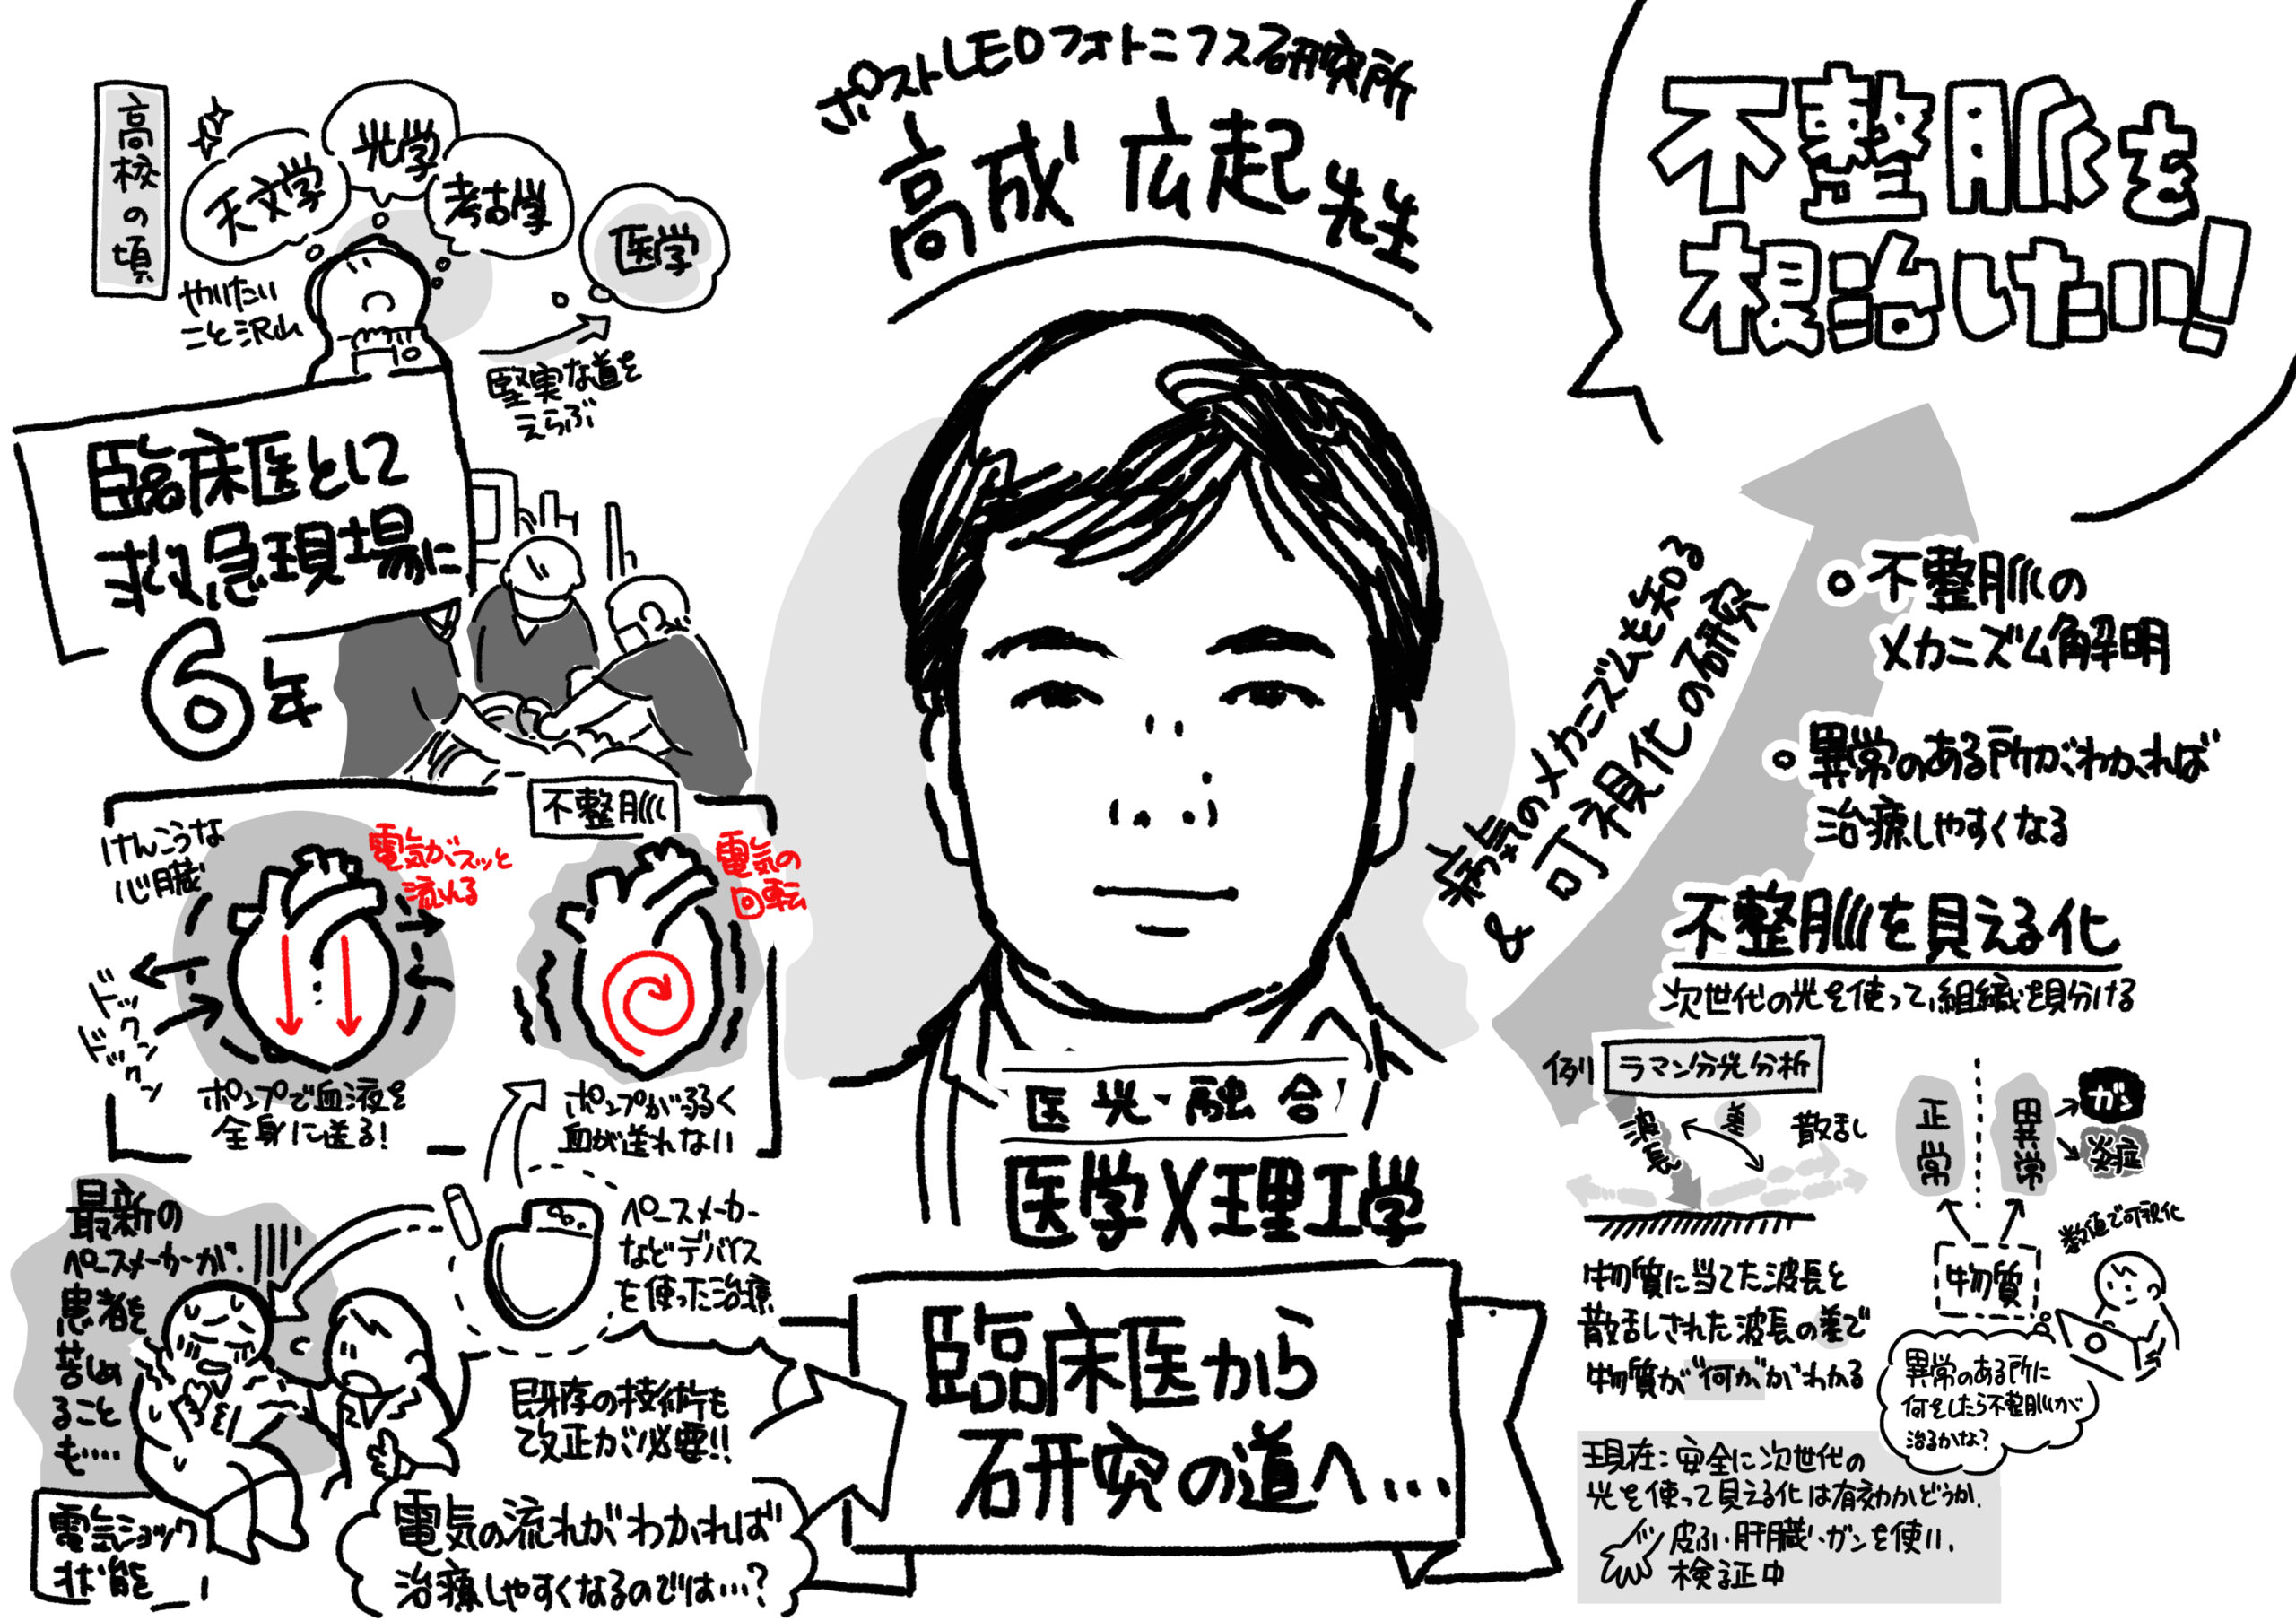 ポストLEDフォトニクス研究所
高成 広起 先生
高校の頃
天文学
光学
考古学
医学
やりたい
こと沢山
堅実な道を
えらぶ
臨床医として
救急現場に
6年
不整脈
けんこうな
心臓
電気がスッと
流れる
ドックン
ドックン
ポンプで血液を
全身に送る!
電気の
回転
ポンプが弱く
血が送れない
最新の
ペースメーカーが、
患者を
苦しめ
ること
も‥‥
電気ショック
状態
ペースメーカー
などデバイス
を使った治療
既存の技術も
改正が必要!!
電気の流れがわかれば
治療しやすくなるのでは…?
医光・融合
医学×理工学
臨床医から
研究の道へ…
不整脈を
根治したい!
病気のメカニズムを知る
& 可視化の研究
○不整脈の
メカニズム解明
○異常のある所がわかれば
治療しやすくなる
不整脈を見える化
次世代の光を使って、組織を見分ける
例 ラマン分光分析
波長
差
散乱
物質に当てた波長と
散乱された波長の差で
物質が"何か"がわかる
正常
異常
ガン
炎症
物質
数値で可視化
異常のある所に
何をしたら不整脈が
治るかな?
現在:安全に次世代の
光を使って見える化は有効かどうか、
皮ふ・肝臓・ガンを使い、
検証中